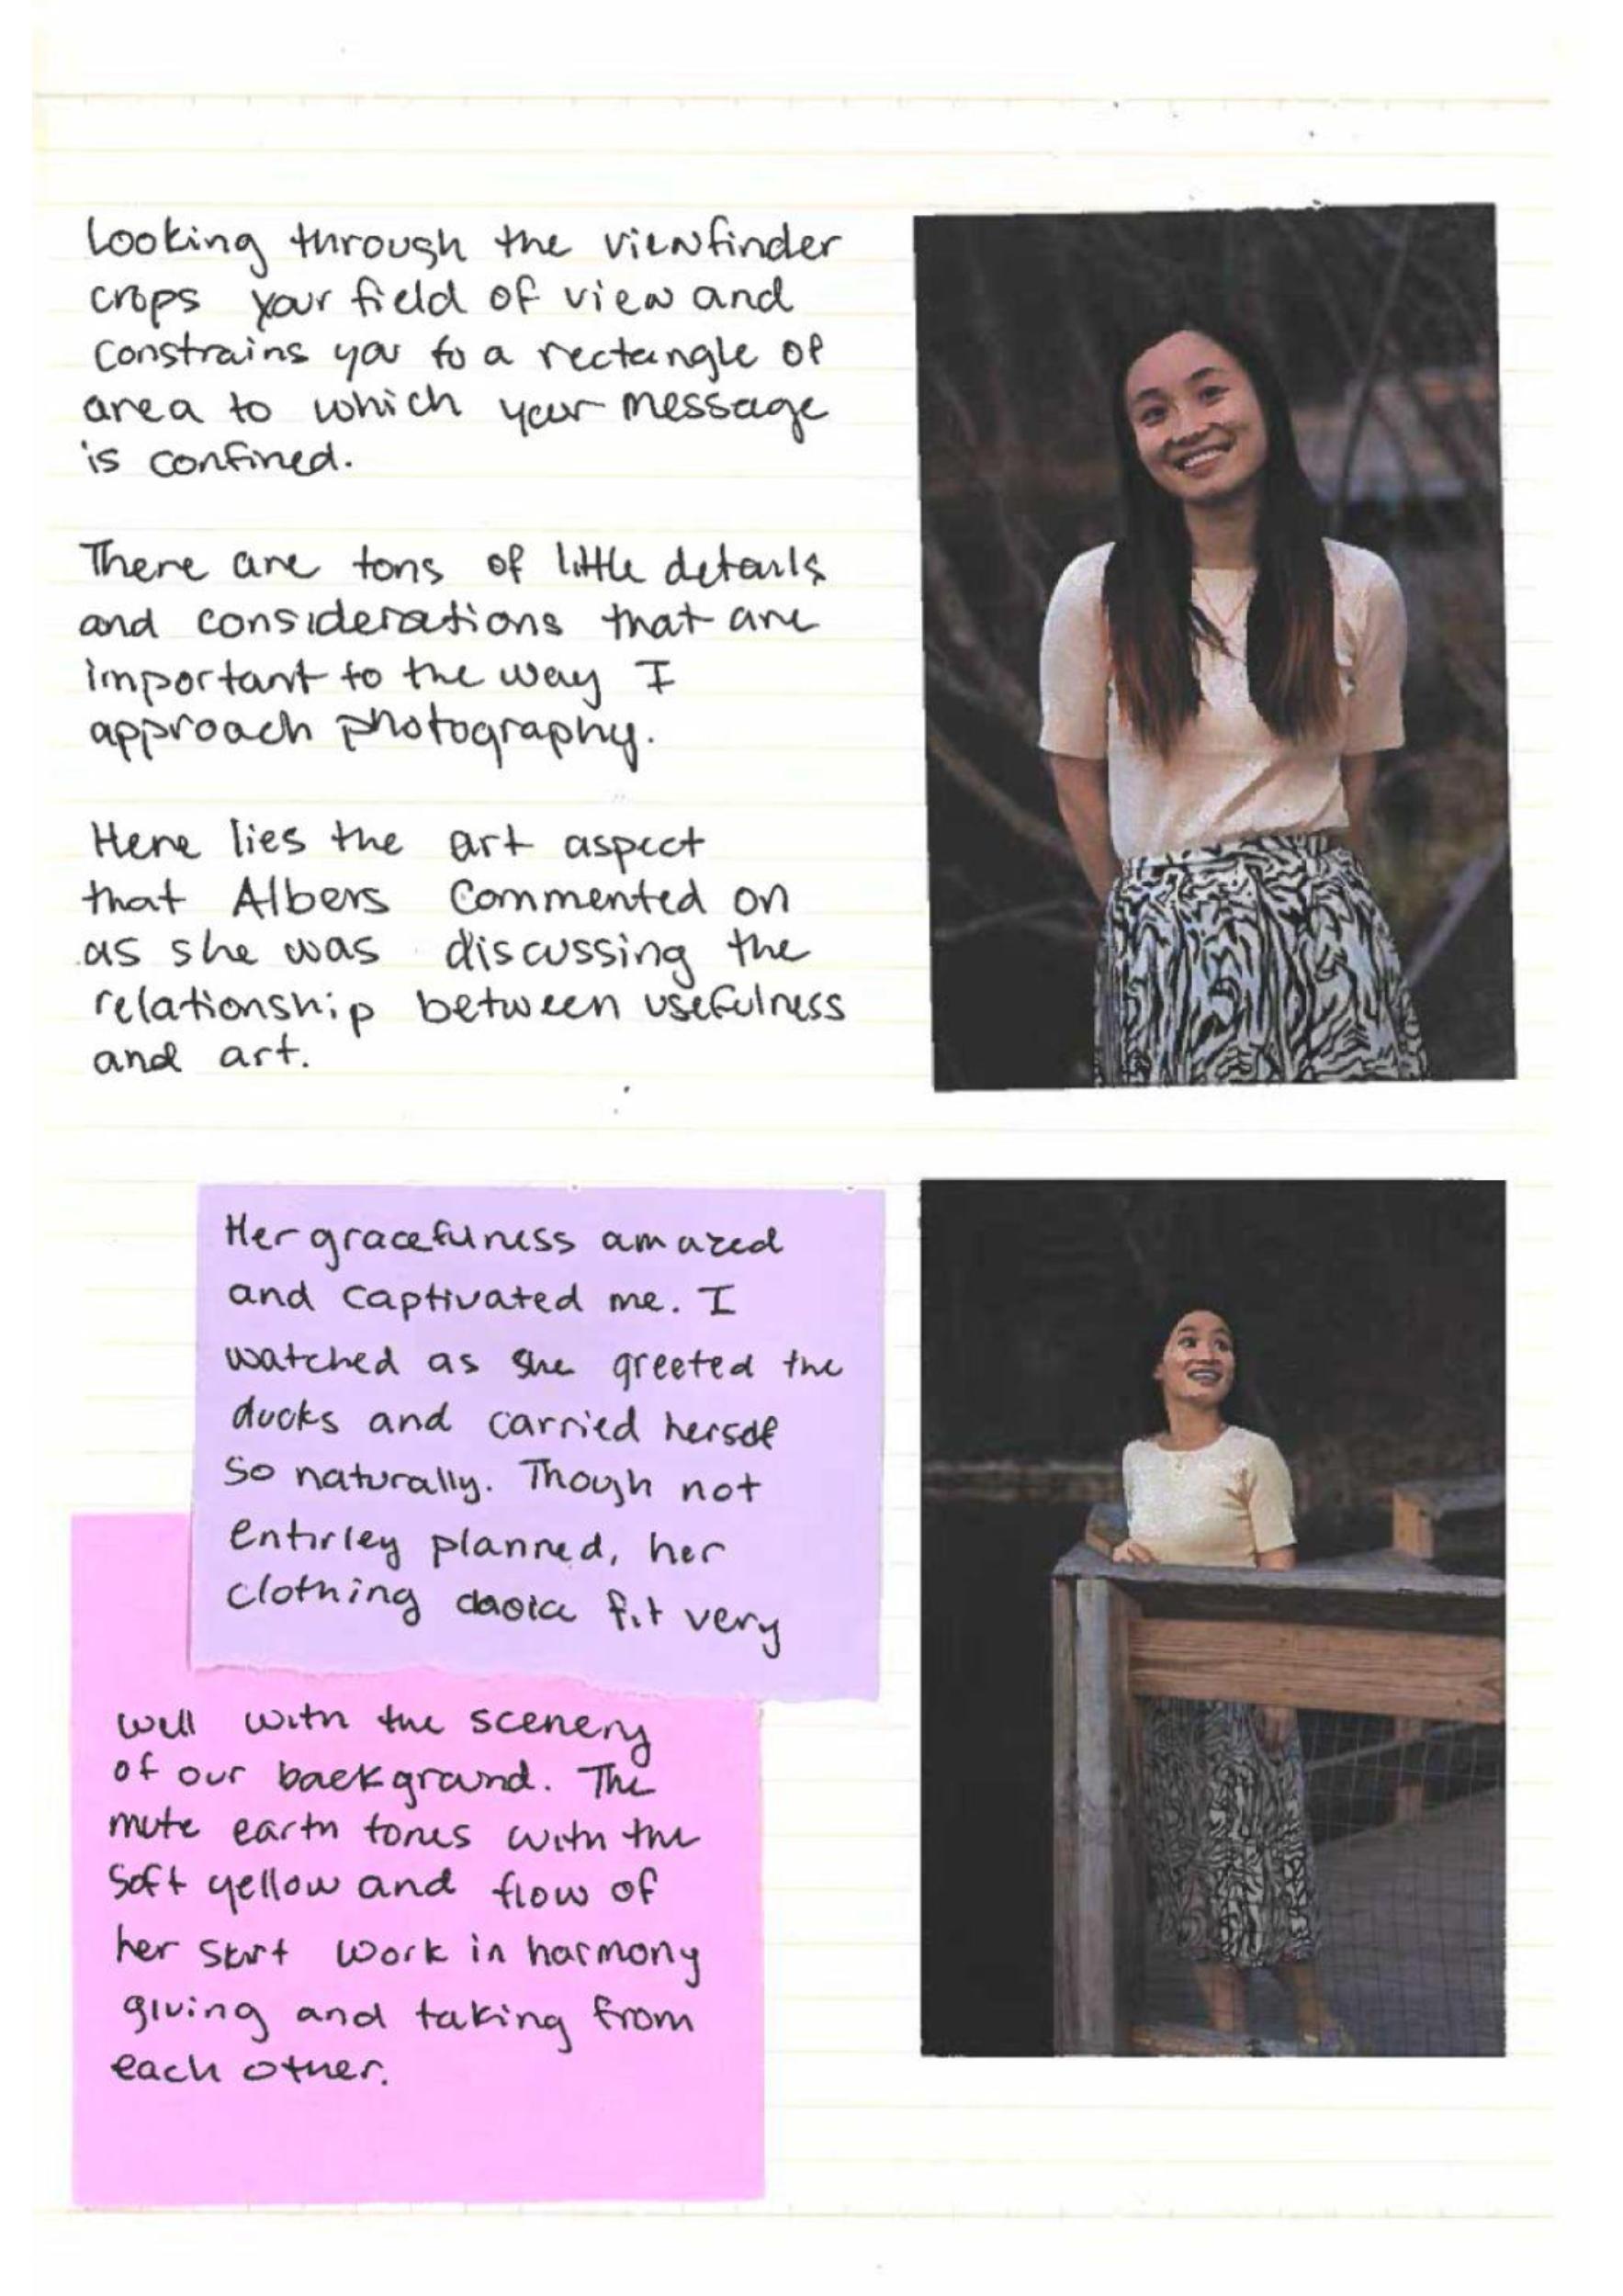 Looking through the viewfinder
crops your field of view and
constrains you to a rectangle of
area to which your message
is confined.
There are tons of little details
and considerations that are
important to the way I
approach photography.
Here lies the art aspect
that Albers commented on
as she was discussing the
relationship between usefulness
and art.
Her gracefulness amazed
and captivated me. I
watched as she greeted the
ducks and carried herself
so naturally. Though not
entirley planned, her
clothing choice fit very
well with the scenery
of our background. The
mute earth tones with the
soft yellow and flow of
her skirt work in harmony
giving and taking from
each other.